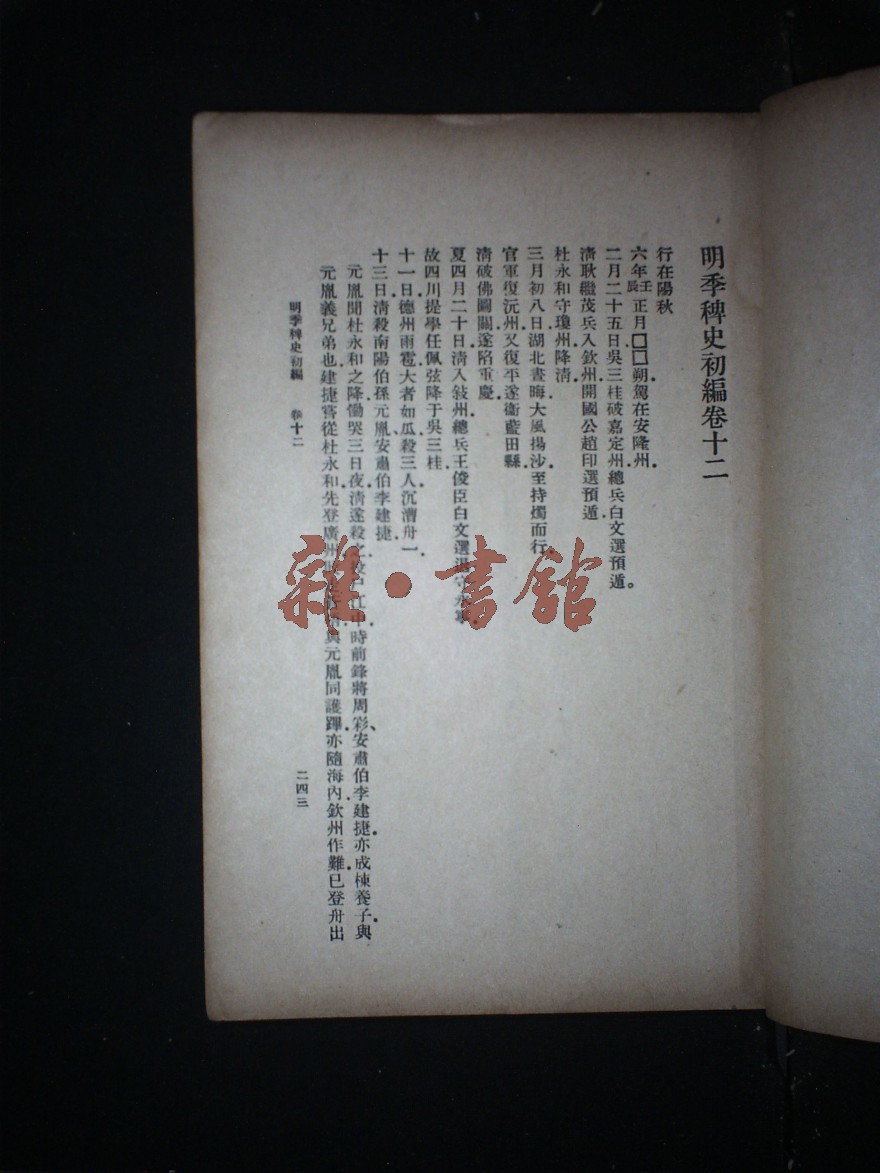 明季稗史初編卷十二
行在陽秋
六年壬辰正月□□朔駕在安隆州.
二月二十五日吳三桂破嘉定州總兵白文選預遁。
淸耿繼茂兵入欽州.開國公趙印選預遁.
杜永和守瓊州降淸.
三月初八日湖北晝晦大風揚沙至持燭而行.
官軍復沅州.又復平遂衞藍田縣.
淸破佛圖關遂陷重慶.
夏四月二十日淸入敍州總兵王俊臣白文選退守永寧.
故四川提學任佩弦降于吳三桂.
十一日德州雨雹大者如瓜.殺三人.沉漕舟一.
十三日淸殺南陽伯孫元胤、安肅伯李建捷.
元胤聞杜永和之降.慟哭三日夜.淸遂殺之.江中.時前鋒將周彩、安肅伯李建捷.亦成棟養子.與
元胤義兄弟也.建捷嘗從杜永和先登廣州與元胤同護蹕.亦隨海內.欽州作難.已登舟出
明季稗史初編 卷十二
二四三
雜·書館